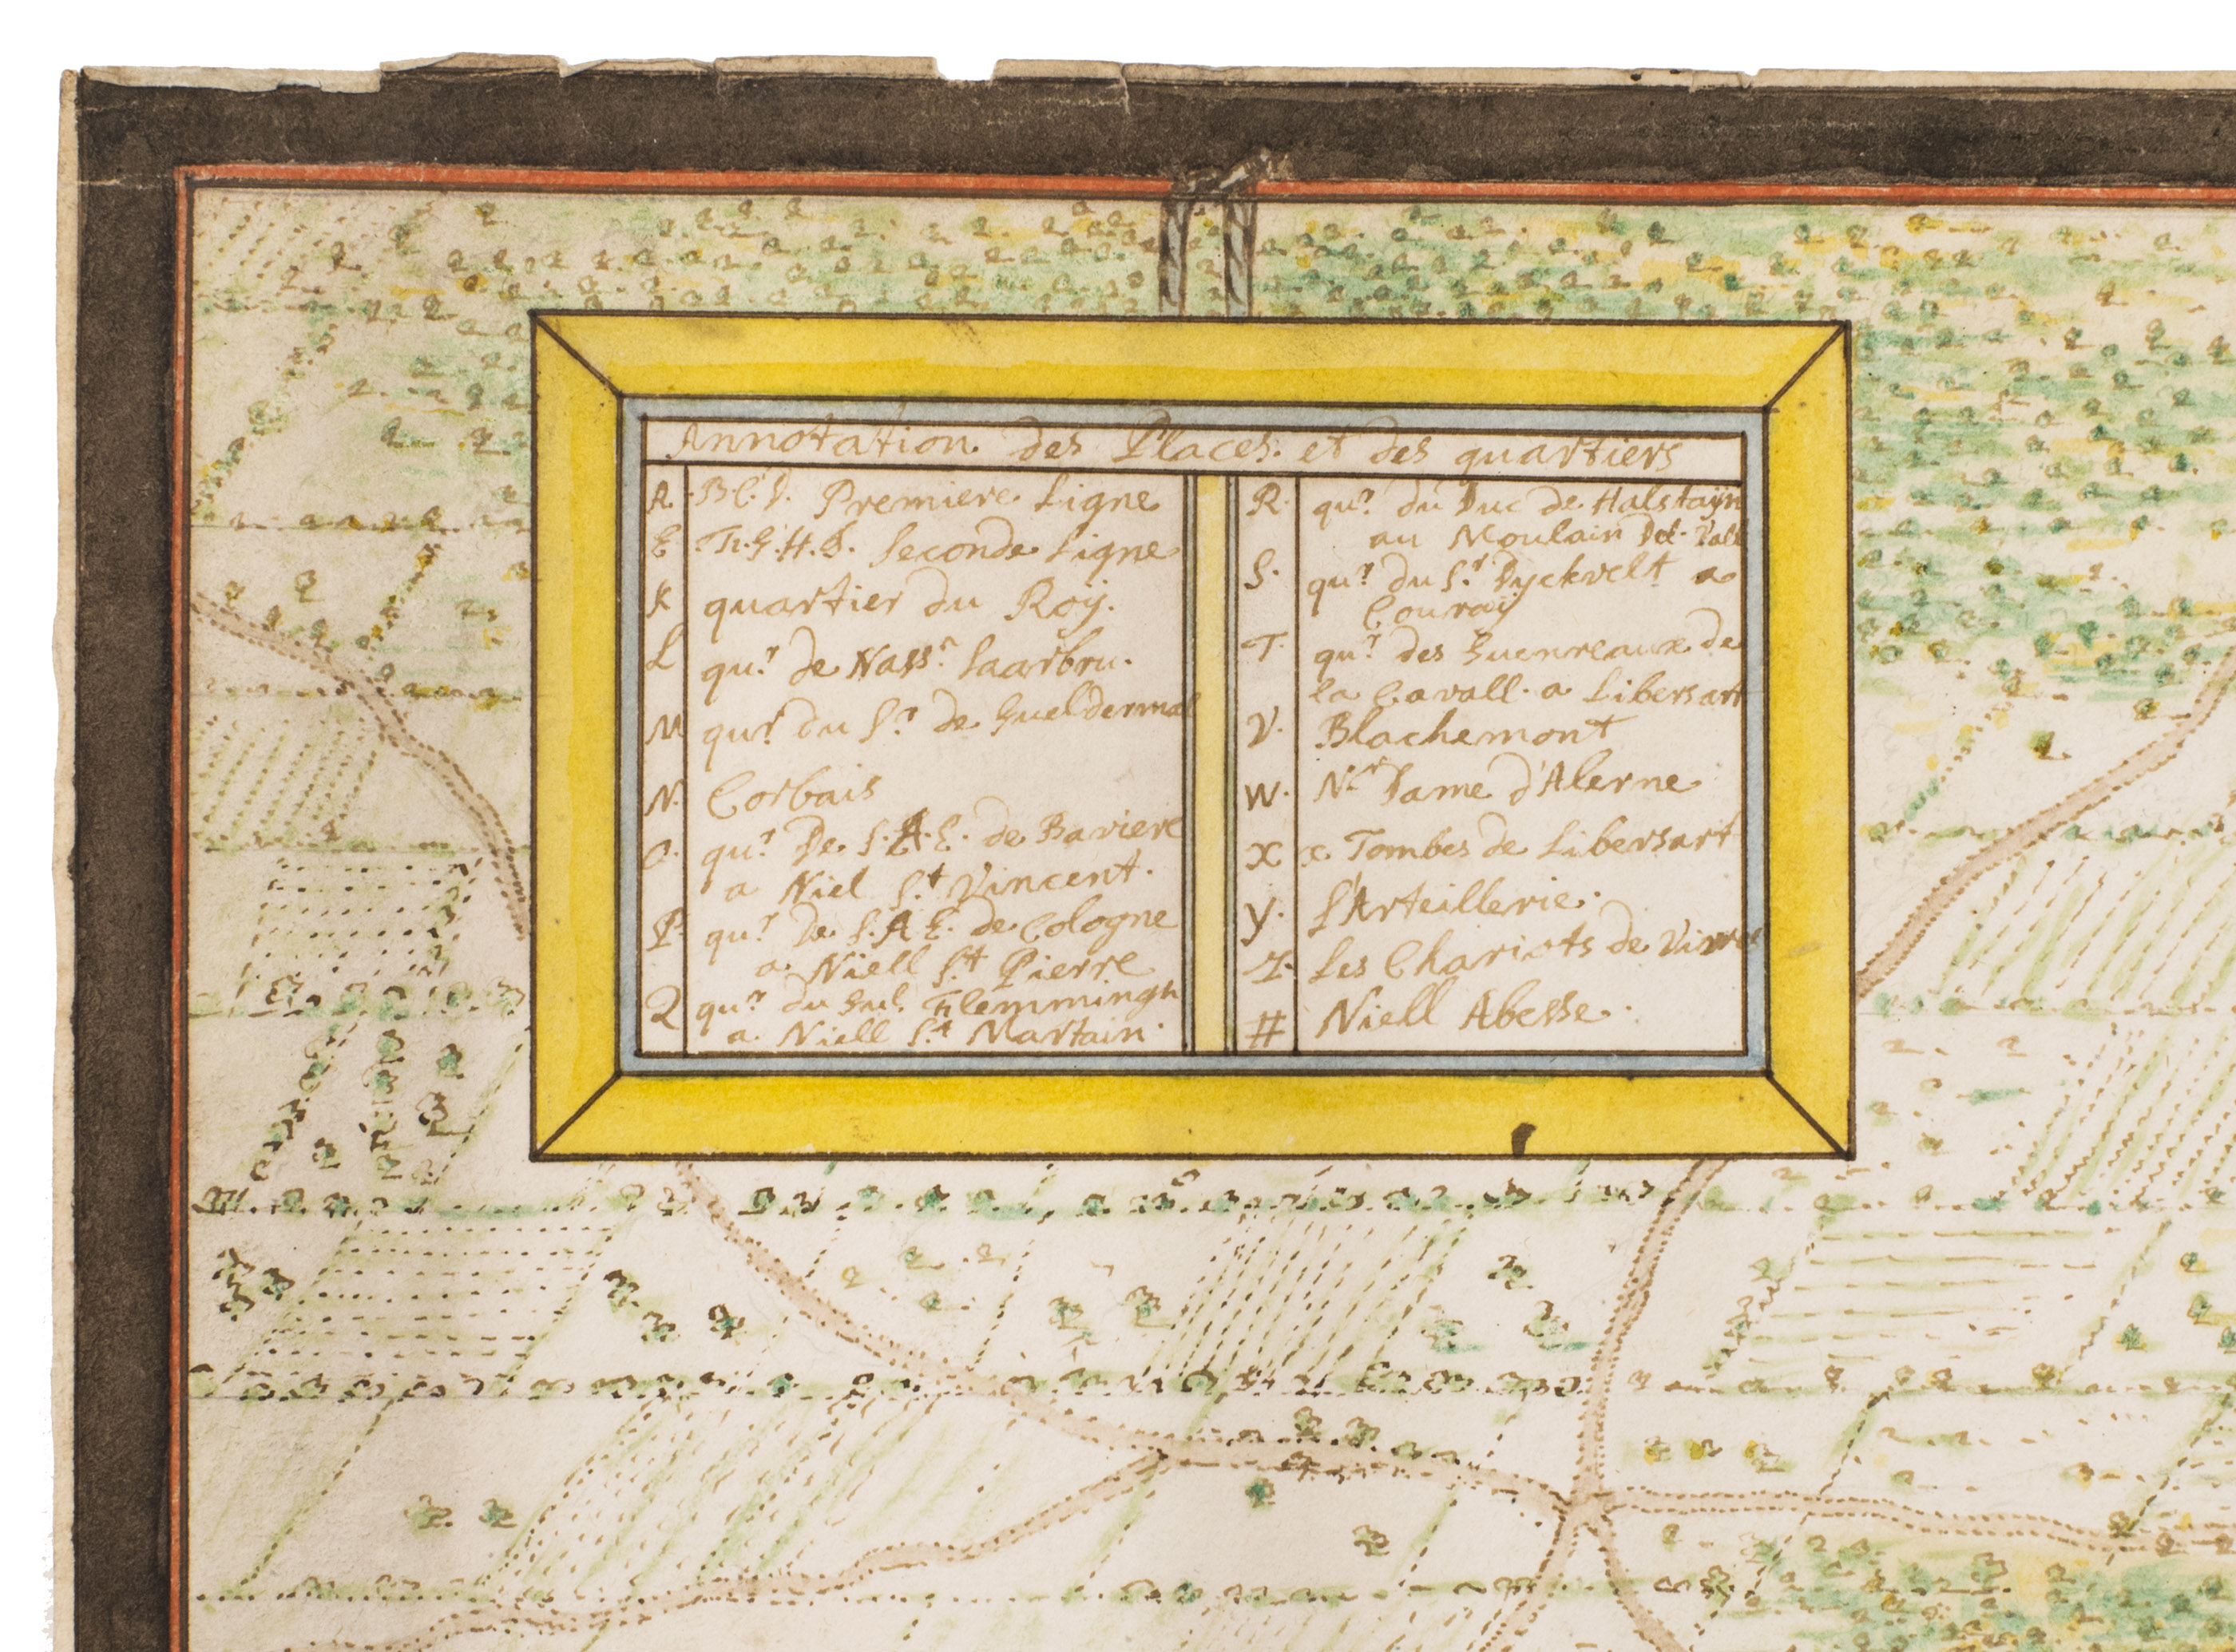 Annotation des Places. et des quartiers
A. B.C.D. Premiere Ligne
E F.G.H.I. Seconde Ligne
K quartier du Roÿ.
L qu.r de Nass.n Saarbru.
M qu.r du S.r de Gueldermal
N. Corbais
O. qu.r De S.A.E. de Baviere
a Niel S.t Vincent.
P. qu.r De S.A.E. de Cologne
a Niell S.t Pierre
Q qu.r du Gnl. Flemmingh
a Niell S.t Martain
R. qu.r du Duc de Halstaÿn
au Moulain Del. Vall
S. qu.r du S.r Dyckvelt a
Couraÿ
T. qu.r des Guenreaux de
la Cavall. a Libersart
V. Blachemont
W. N.r Dame d'Alerne
X x. Tombes de Libersart
y. L'Arteillerie.
Z. Les Chariots de
# Niell Abesse.